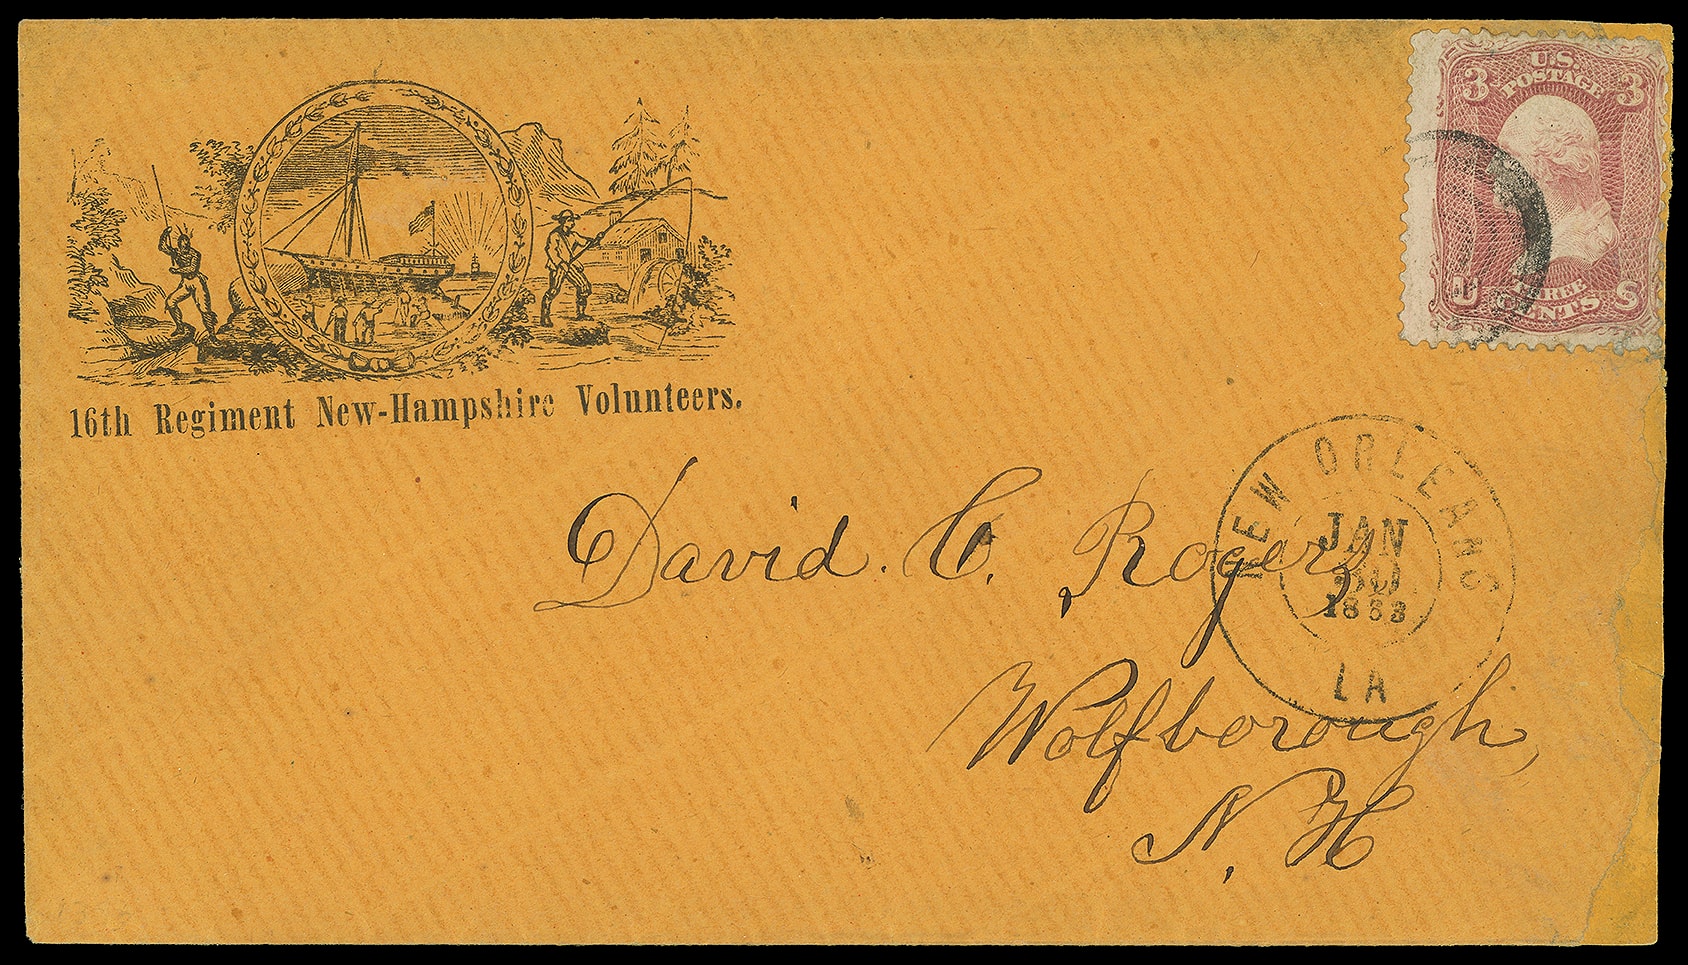 3 U.S. 3
POSTAGE
U THREE S
CENTS
16th Regiment New-Hampshire Volunteers.
NEW ORLEANS
JAN
1863
LA
David. C. Rogers
Wolfborough,
N. H